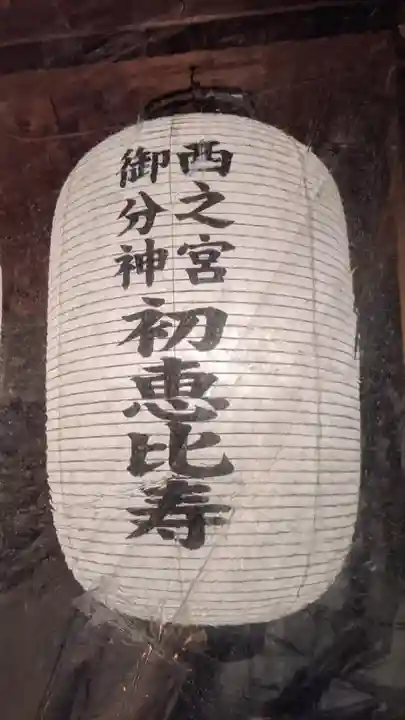 西之宮
御分神
初恵比寿